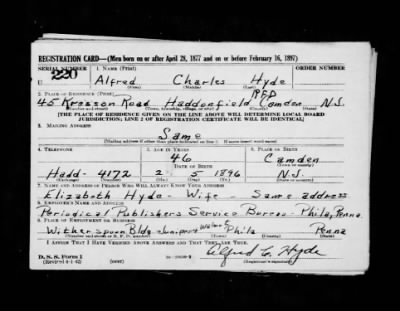 REGISTRATION CARD—(Men born on or after April 28, 1877 and on or before February 16, 1897)
SERIAL NUMBER 1. NAME (Print) ORDER NUMBER
U 220 Alfred Charles Hyde
(First) (Middle) (Last)
2. PLACE OF RESIDENCE (Print) RFD
45 Kresson Road Haddonfield Camden N.J.
(Number and street) (Town, township, village, or city) (County) (State)
[THE PLACE OF RESIDENCE GIVEN ON THE LINE ABOVE WILL DETERMINE LOCAL BOARD
JURISDICTION; LINE 2 OF REGISTRATION CERTIFICATE WILL BE IDENTICAL]
3. MAILING ADDRESS
Same
(Mailing address if other than place indicated on line 2. If same insert word same)
4. TELEPHONE 5. AGE IN YEARS 6. PLACE OF BIRTH
46 Camden
DATE OF BIRTH (Town or county)
Hadd- 4172 2 5 1896 N.J.
(Exchange) (Number) (Mo.) (Day) (Yr.) (State or country)
7. NAME AND ADDRESS OF PERSON WHO WILL ALWAYS KNOW YOUR ADDRESS
Elizabeth Hyde - Wife - Same address
8. EMPLOYER'S NAME AND ADDRESS
Periodical Publishers Service Bureau - Phila, Penna
9. PLACE OF EMPLOYMENT OR BUSINESS
Witherspoon Bldg. Juniper & Walnut Phila Penna
(Number and street or R. F. D. number) (Town) (County) (State)
I AFFIRM THAT I HAVE VERIFIED ABOVE ANSWERS AND THAT THEY ARE TRUE.
D. S. S. Form 1
(Revised 4-1-42) (over) Alfred C. Hyde
(Registrant's signature)